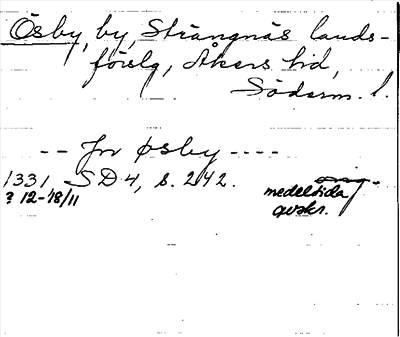 Ösby, by, Strängnäs lands-
förslg, Åkers hd,
Söderm. l.
-- Jn øsby ----
1331 SD 4, s. 242. orig.
? 12-18/11 medeltida
avskr.